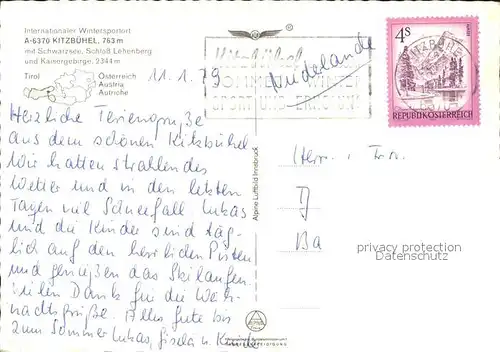 Internationaler Wintersportort
A-6370 KITZBÜHEL, 763 m
mit Schwarzsee, Schloß Lebenberg
und Kaisergebirge, 2344 m
Tirol
Österreich
Austria
Autriche
11.1.79
Herzliche Feriengrüße
aus dem schönen Kitzbühel
Wir hatten strahlendes
Wetter und in den letzten
Tagen viel Schneefall. Lukas
und die Kinder sind täg-
lich auf den herrlichen Pisten
und genießen das Skilaufen.
Vielen Dank für die Weih-
nachtsgrüße. Alles Gute bis
zum Sommer Lukas, Gisela u. Kinder
Alpine Luftbild Innsbruck
4S
REPUBLIK ÖSTERREICH
KITZBÜHEL
Herr. u. Frn.
D
Ba
privacy protection
Datenschutz